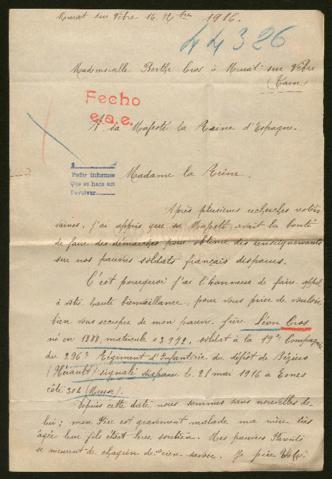 Murat sur Vèbre 16, 7bre, 1916.
44326
Mademoiselle Berthe Cros à Murat sur Vèbre
(Tarn)
Fecho
e.a.e.
A sa Majesté la Reine d'Espagne.
Pedir informes
Que se haga así
Devolver
Madame la Reine.
Après plusieurs recherches
vaines, j'ai appris que sa Majesté avait la bonté
de faire des démarches pour obtenir des renseignements
sur nos pauvres soldats français disparus.
C'est pourquoi j'ai l'honneur de faire appel
à votre haute bienveillance, pour vous prier de vouloir
bien vous occuper de mon pauvre frère Léon Cros
né en 1888, matricule 03792, soldat à la 19e Compagnie
du 296e Régiment d'Infanterie du dépôt de Béziers
(Hérault) signalé disparu le 21 mai 1916 à Esnes
côte 304 (Meuse).
Depuis cette date, nous sommes sans nouvelles de
lui; mon Père est gravement malade ma mère très
âgée leur fils était leur soutien. Mes pauvres Parents
se meurent de chagrin de rien savoir. Je prie